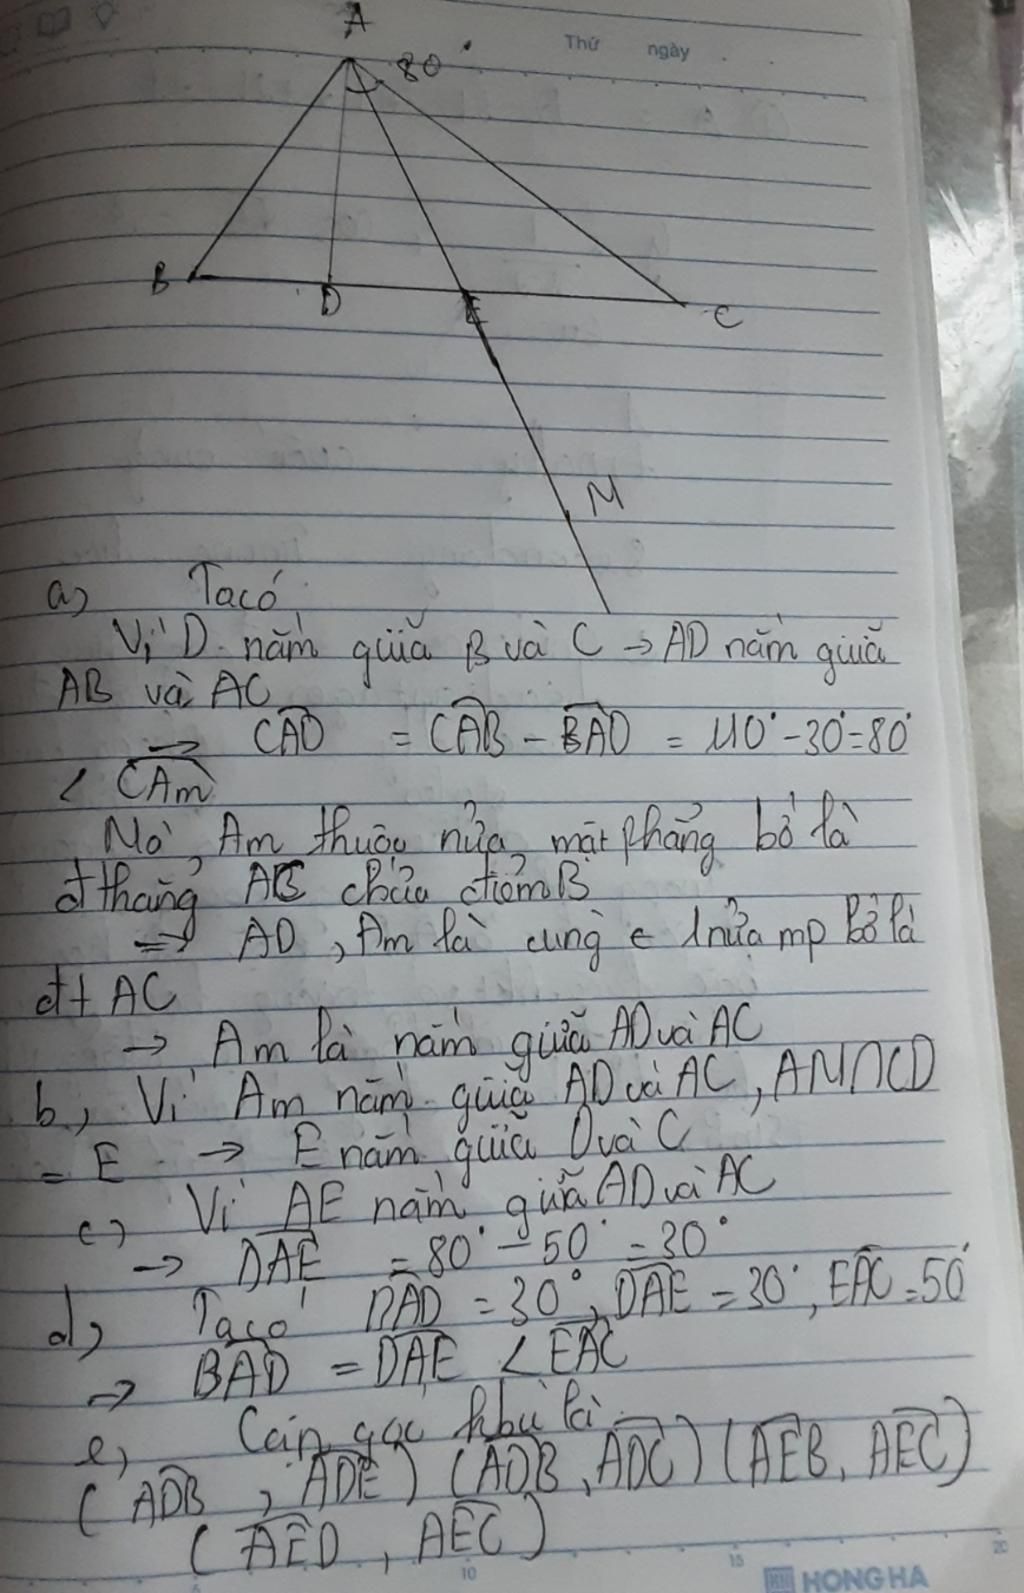 A
80
Thứ ngày
B
D
E
C
M
a) Ta có
Vì D nằm giữa B và C → AD nằm giữa
AB và AC
→ CAD = CAB - BAD = 110° - 30° = 80°
< CAm
Mà Am thuộc nửa mặt phẳng bờ là
đthẳng AC chứa điểm B
=> AD, Am là cùng ∈ 1 nửa mp bờ là
đt AC
→ Am là nằm giữa AD và AC
b, Vì Am nằm giữa AD và AC, AM∩CD
= E → E nằm giữa D và C
c) Vì AE nằm giữa AD và AC
→ DAE = 80° - 50° = 30°
d, Ta có BAD = 30°, DAE = 30°, EAC = 50°
→ BAD = DAE < EAC
e, góc là
(ADB, ADE) (ADB, ADC) (AEB, AEC)
(AED, AEC)
10
15
20
HONG HA